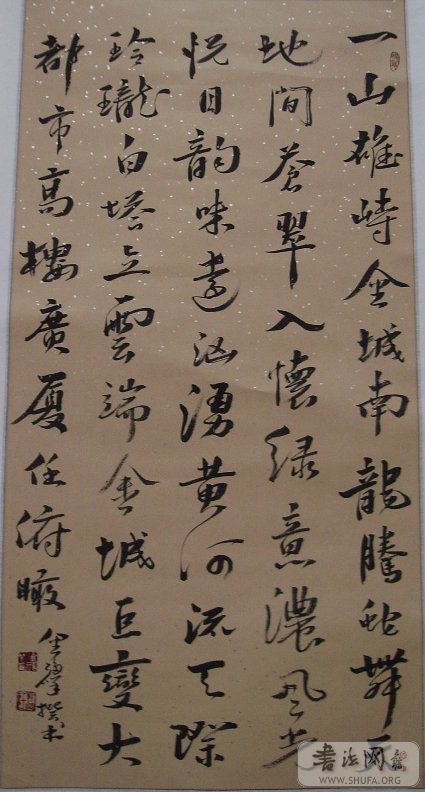 一山雄峙金城南龍騰蛇舞天
地間蒼翠入懷緑意濃風光
悦目韵味遠汹湧黄河流天際
玲瓏白塔立雲端金城巨變大
都市高樓廣厦任俯瞰
書法网
WWW.SHUFA.ORG